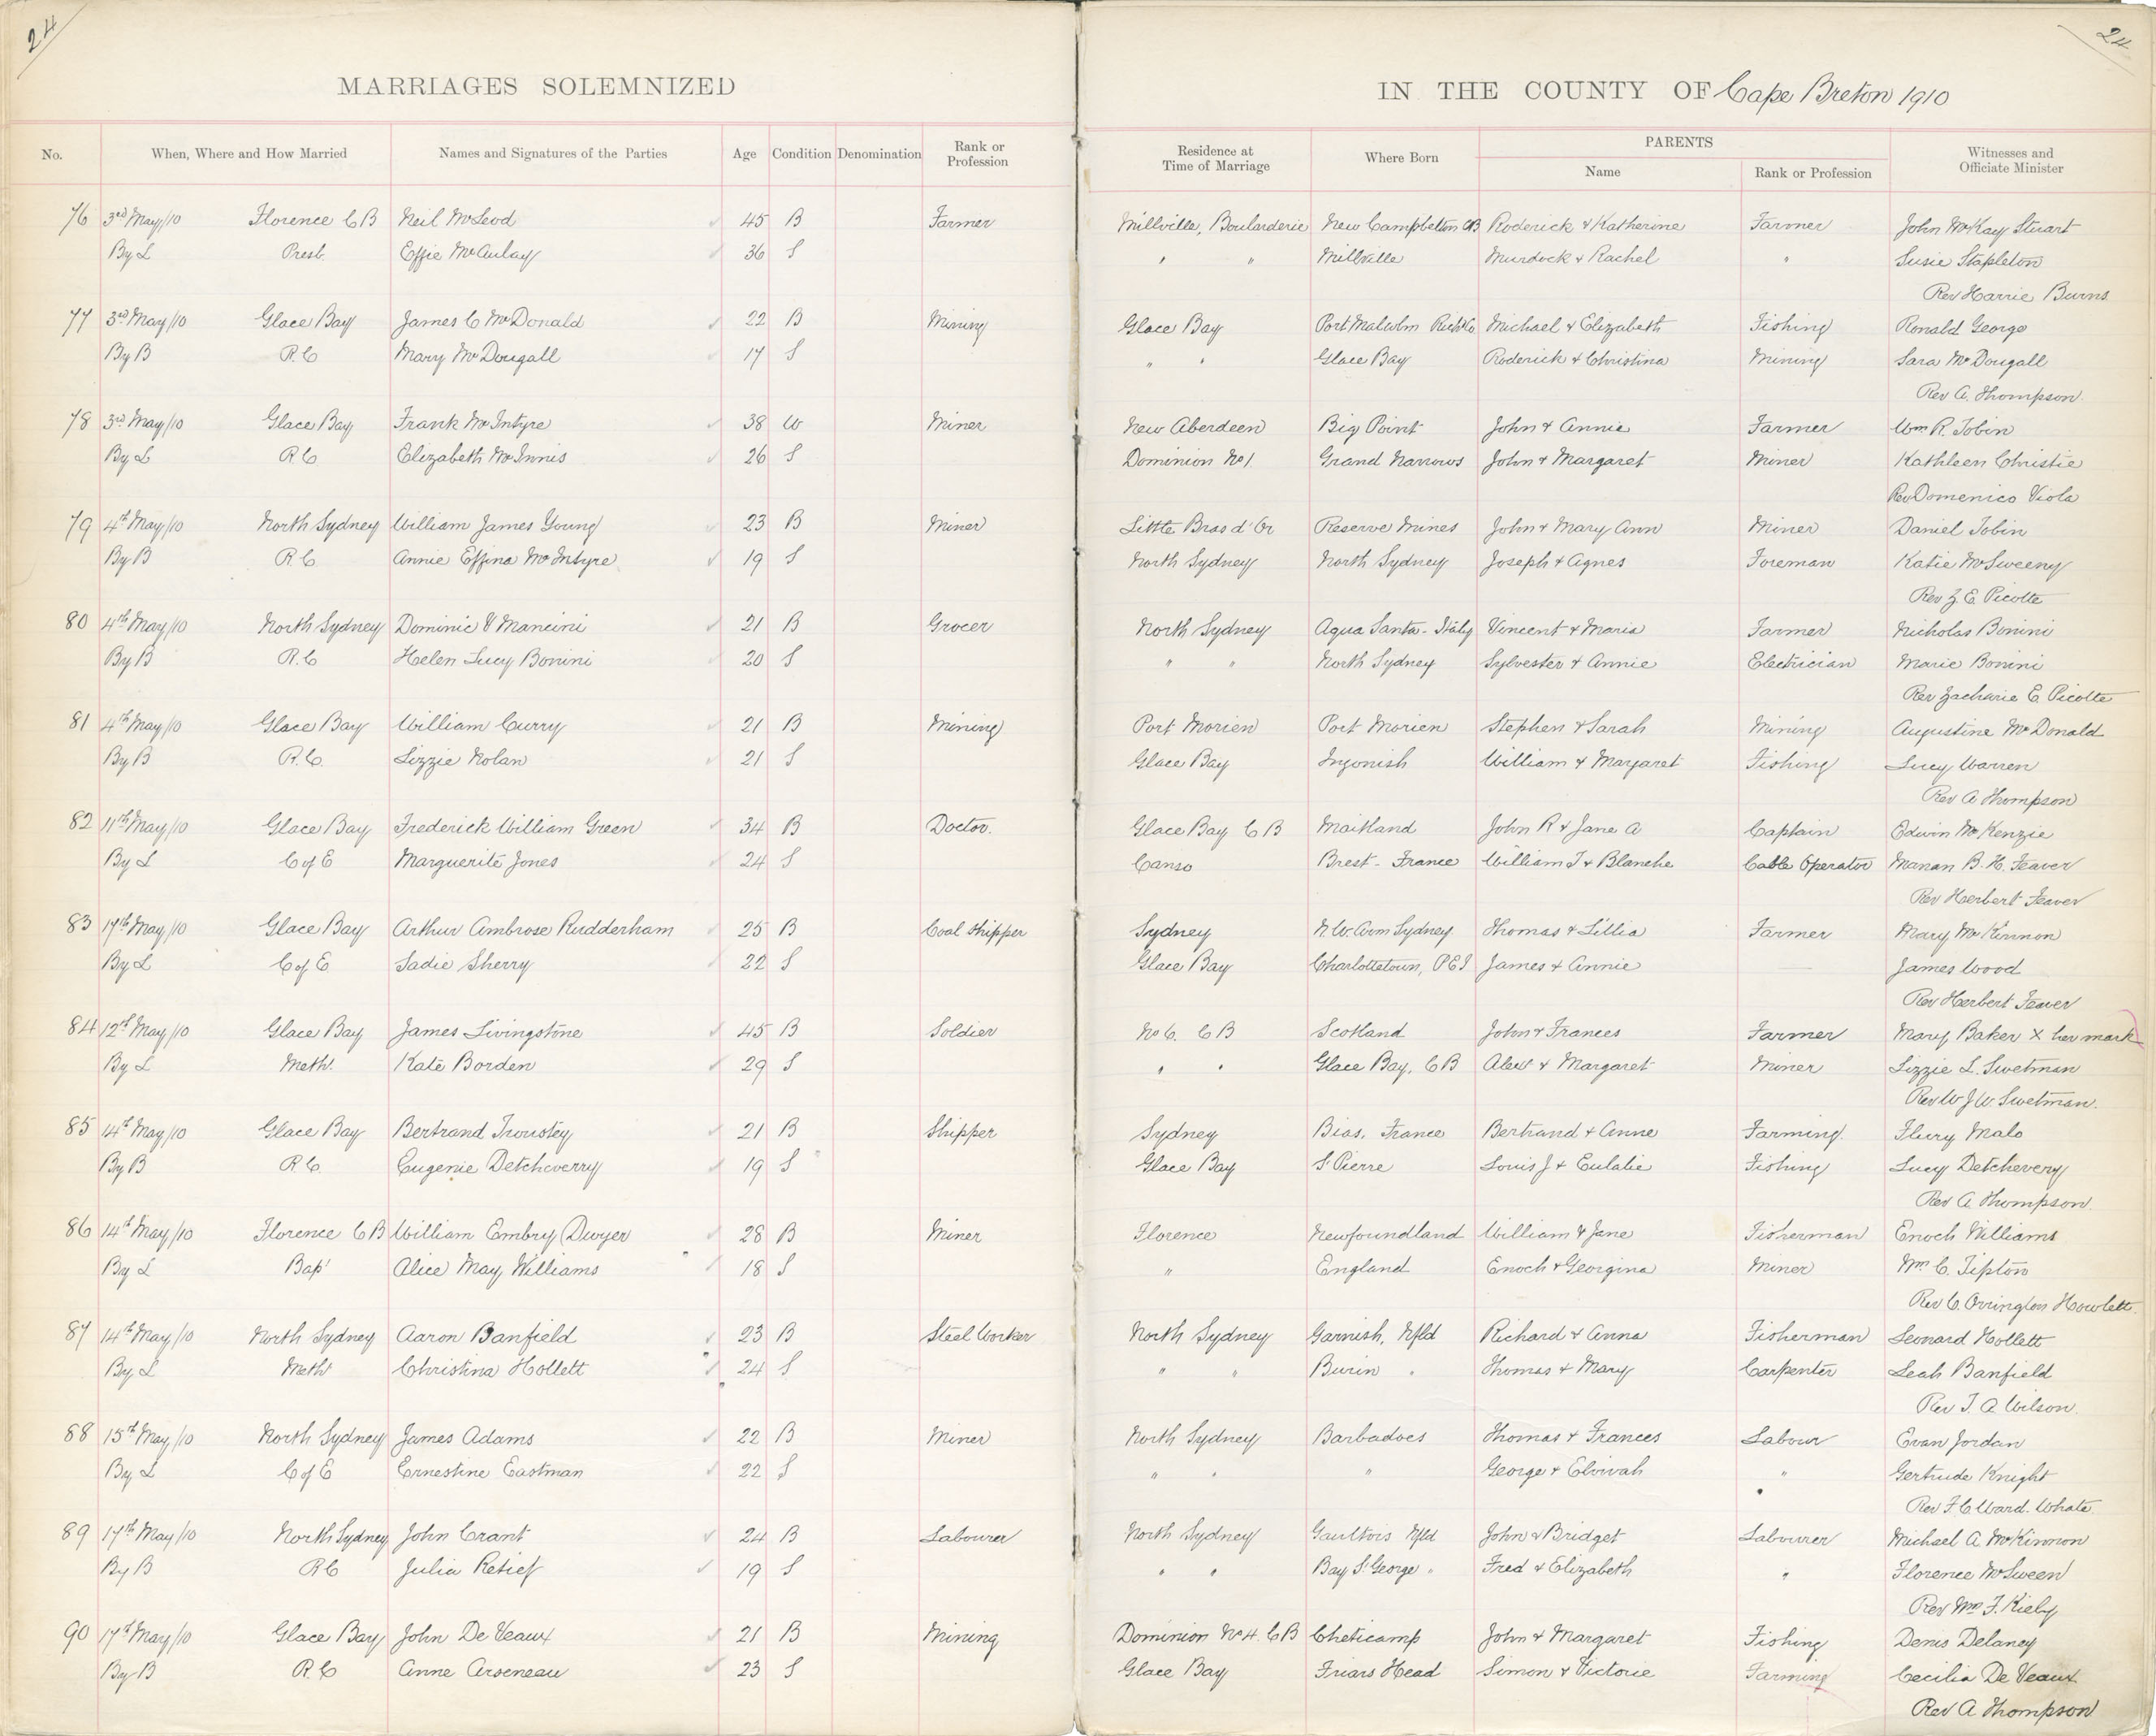 24
24
MARRIAGES SOLEMNIZED IN THE COUNTY OF Cape Breton 1910
No. When, Where and How Married Names and Signatures of the Parties Age Condition Denomination Rank or Profession Residence at Time of Marriage Where Born PARENTS Name Rank or Profession Witnesses and Officiate Minister
76 3rd May/10 Florence C B Neil McLeod 45 B Farmer Millville, Boularderie New Campbelton CB Roderick & Katherine Farmer John McKay Stuart
By L Presb. Effie McAulay 36 S " " Millville Murdock & Rachel " Susie Stapleton
Rev Harrie Burns
77 3rd May/10 Glace Bay James C McDonald 22 B Mining Glace Bay Port Malcolm Rich Co Michael & Elizabeth Fishing Ronald George
By B R.C Mary McDougall 17 S " " Glace Bay Roderick & Christina Mining Sara McDougall
Rev A. Thompson
78 3rd May/10 Glace Bay Frank McIntyre 38 W Miner New Aberdeen Big Point John & Annie Farmer Wm R. Tobin
By L R C Elizabeth McInnis 26 S Dominion No 1 Grand Narrows John & Margaret Miner Kathleen Christie
Rev Domenico Viola
79 4th May/10 North Sydney William James Young 23 B Miner Little Bras d'Or Reserve Mines John & Mary Ann Miner Daniel Tobin
By B R.C Annie Effina McIntyre 19 S North Sydney North Sydney Joseph & Agnes Foreman Katie McSweeny
Rev Z. E. Picotte
80 4th May/10 North Sydney Dominic V Mancini 21 B Grocer North Sydney Aqua Santa - Italy Vincent & Maria Farmer Nicholas Bonini
By B R.C Helen Lucy Bonini 20 S " " North Sydney Sylvester & Annie Electrician Marie Bonini
Rev Zacharie E Picotte
81 4th May/10 Glace Bay William Curry 21 B Mining Port Morien Port Morien Stephen & Sarah Mining Augustine McDonald
By B R.C. Lizzie Nolan 21 S Glace Bay Ingonish William & Margaret Fishing Lucy Warren
Rev A Thompson
82 11th May/10 Glace Bay Frederick William Green 34 B Doctor. Glace Bay C B Maitland John R & Jane A Captain Edwin McKenzie
By L C of E Marguerite Jones 24 S Canso Brest - France William T & Blanche Cable Operator Manan B. H. Feaver
Rev Herbert Feaver
83 17th May/10 Glace Bay Arthur Ambrose Rudderham 25 B Coal Shipper Sydney N.W. Arm Sydney Thomas & Lillia Farmer Mary McKinnon
By L C of E Sadie Sherry 22 S Glace Bay Charlottetown, P E I James & Annie James Wood
Rev Herbert Feaver
84 12th May/10 Glace Bay James Livingstone 45 B Soldier No 6. C B Scotland John & Frances Farmer Mary Baker X her mark
By L Meth. Kate Borden 29 S " " Glace Bay, C B Alex & Margaret Miner Lizzie L. Swetman
Rev W J W Swetman.
85 14th May/10 Glace Bay Bertrand Troustey 21 B Shipper Sydney Bias, France Bertrand & Anne Farming. Flury Malo
By B R C. Eugenie Detcheverry 19 S Glace Bay St Pierre Louis J & Eulalie Fishing Lucy Detchevery
Rev A Thompson.
86 14th May/10 Florence C B William Embry Dwyer 28 B Miner Florence Newfoundland William & Jane Fisherman Enoch Williams
By L Bapt Alice May Williams 18 S " England Enoch & Georgina Miner Wm C. Tipton
Rev C. Orrington Howlett.
87 14th May/10 North Sydney Aaron Banfield 23 B Steel Worker North Sydney Garnish, Nfld Richard & Anna Fisherman Leonard Hollett
By L Meth Christina Hollett 24 S " " Burin " Thomas & Mary Carpenter Leah Banfield
Rev T. A Wilson.
88 15th May/10 North Sydney James Adams 22 B Miner North Sydney Barbadoes Thomas & Frances Labour Evan Jordan
By L C of E Ernestine Eastman 22 S " " " George & Elvirah " Gertrude Knight
Rev F. C Ward. Whate.
89 17th May/10 North Sydney John Crant 24 B Labourer North Sydney Gaultois Nfld John & Bridget Labourer Michael A McKinnon
By B R C Julia Retief 19 S " " Bay St George " Fred & Elizabeth " Florence McSween
Rev Wm F. Kiely
90 17th May/10 Glace Bay John De Veaux 21 B Mining Dominion No 4. C B Cheticamp John & Margaret Fishing Denis Delaney
By B R.C Anne Arseneau 23 S Glace Bay Friars Head Simon & Victorie Farming Cecilia De Veaux
Rev A Thompson